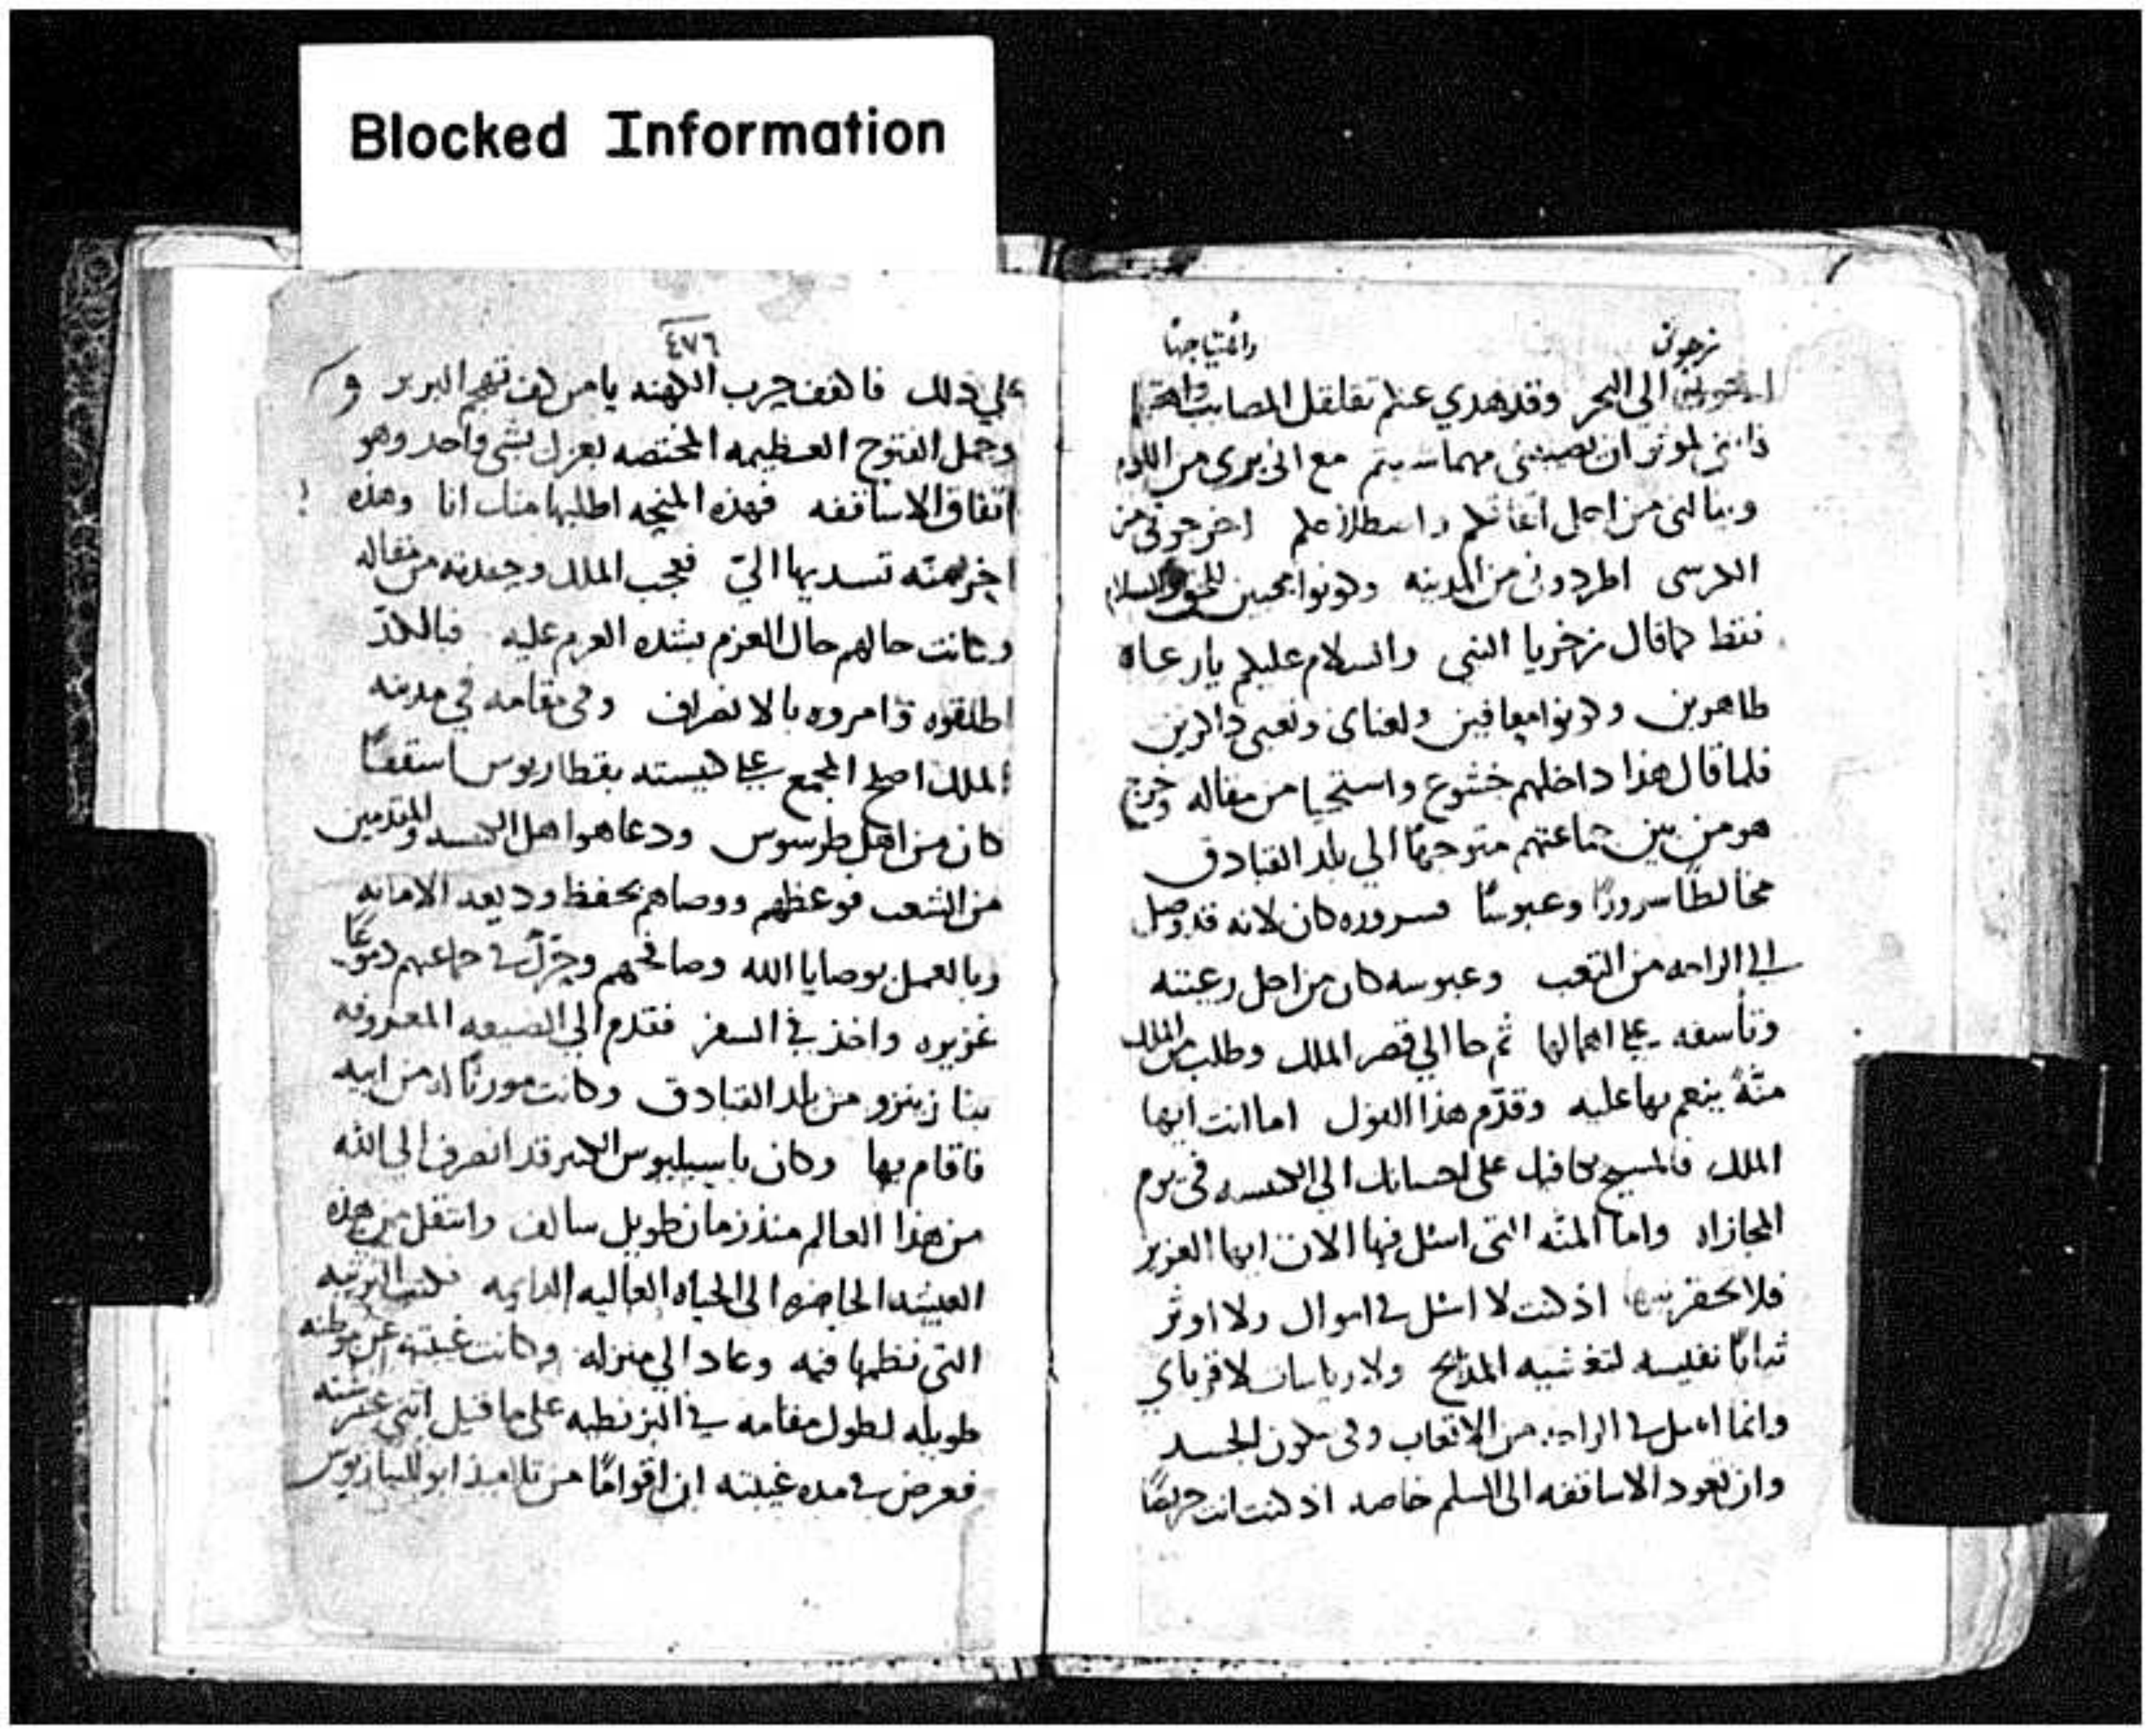 Blocked Information
تزجوني واهتياجها
الي البحر وقد هدي عنكم تقلقل المصايب
ان تصيبني مهما سيتم مع اني بري من
من اجل اخرجوني من
الكرسي اطردوني من المدينه وكونوا محبين للحق والسلام
فقط كما قال زخريا النبي والسلام عليكم يا رعاه
طاهرين وكونوا معافين ولعناي وتعبي ذاكرين
فلما قال هذا داخلهم خشوع واستحيا من مقاله وخرج
هو من بين جماعتهم متوجهًا الي بلد القبادق
مخالطًا سرورًا وعبوسًا فسروره كان لانه قد وصل
الي الراحه من التعب وعبوسه كان من اجل رعيته
وتأسفه علي اهمالها ثم جا الي قصر الملك وطلب من الملك
منّهً ينعم بها عليه وقدّم هذا القول اما انت ايها
الملك فالمسيح يكافيك على احسانك الي الكنيسه في يوم
المجازاه واما المنّه التي اسئل فيها الان ايها العزيز
فلا تحقرنها اذ كنت لا اسئل في اموال ولا اوثر
ثيابًا نفيسه لتغشيه المذبح ولا رياسات لاقرباي
وانما اسل في الراحه من الاتعاب وفي سكون الجسد
وان تعود الاساقفه الى السلم خاصه اذ كنت انت حريصًا
٤٧٦
علي ذلك فاكفف حرب الكهنه يا من كففت تهجم البربر و
وجمل الفتوح العظيمه المختصه بعزك بشي واحد وهو
اتفاق الاساقفه فهذه المنحه اطلبها منك انا وهذه
اخر منّه تسديها اليّ فعجب الملك وجنده من مقاله
وكانت حالهم حال العزم بشده العزم عليه فبالكدّ
اطلقوه وامروه بالانصراف وفي مقامه في مدينه
الملك اصلح المجمع علي كنيسته بقطاريوس اسقفًا
كان من اهل طرسوس ودعا هو اهل الكنيسه والمتقدمين
من الشعب فوعظهم ووصاهم بحفظ وديعه الامانه
وبالعمل بوصايا الله وصافحهم وحرّك في جماعتهم دموعًا
غزيره واخذ في السفر فتقدم الي الضيعه المعروفه
بنازينزو من بلد القبادق وكانت موروثًا له من ابيه
فاقام بها وكان باسيليوس الكبير قد انصرف الي الله
من هذا العالم منذ زمان طويل سالف وانتقل من هذه
العيشه الحاضره الى الحياه العاليه الدايمه فكتب المرثيه
التي نظمها فيه وعاد الي منزله وكانت غيبته عن موطنه
طويله لطول مقامه في البزنطيه على ما قيل اثني عشر سنه
فعرض في مده غيبته ان اقوامًا من تلاميذ ابوليناريوس